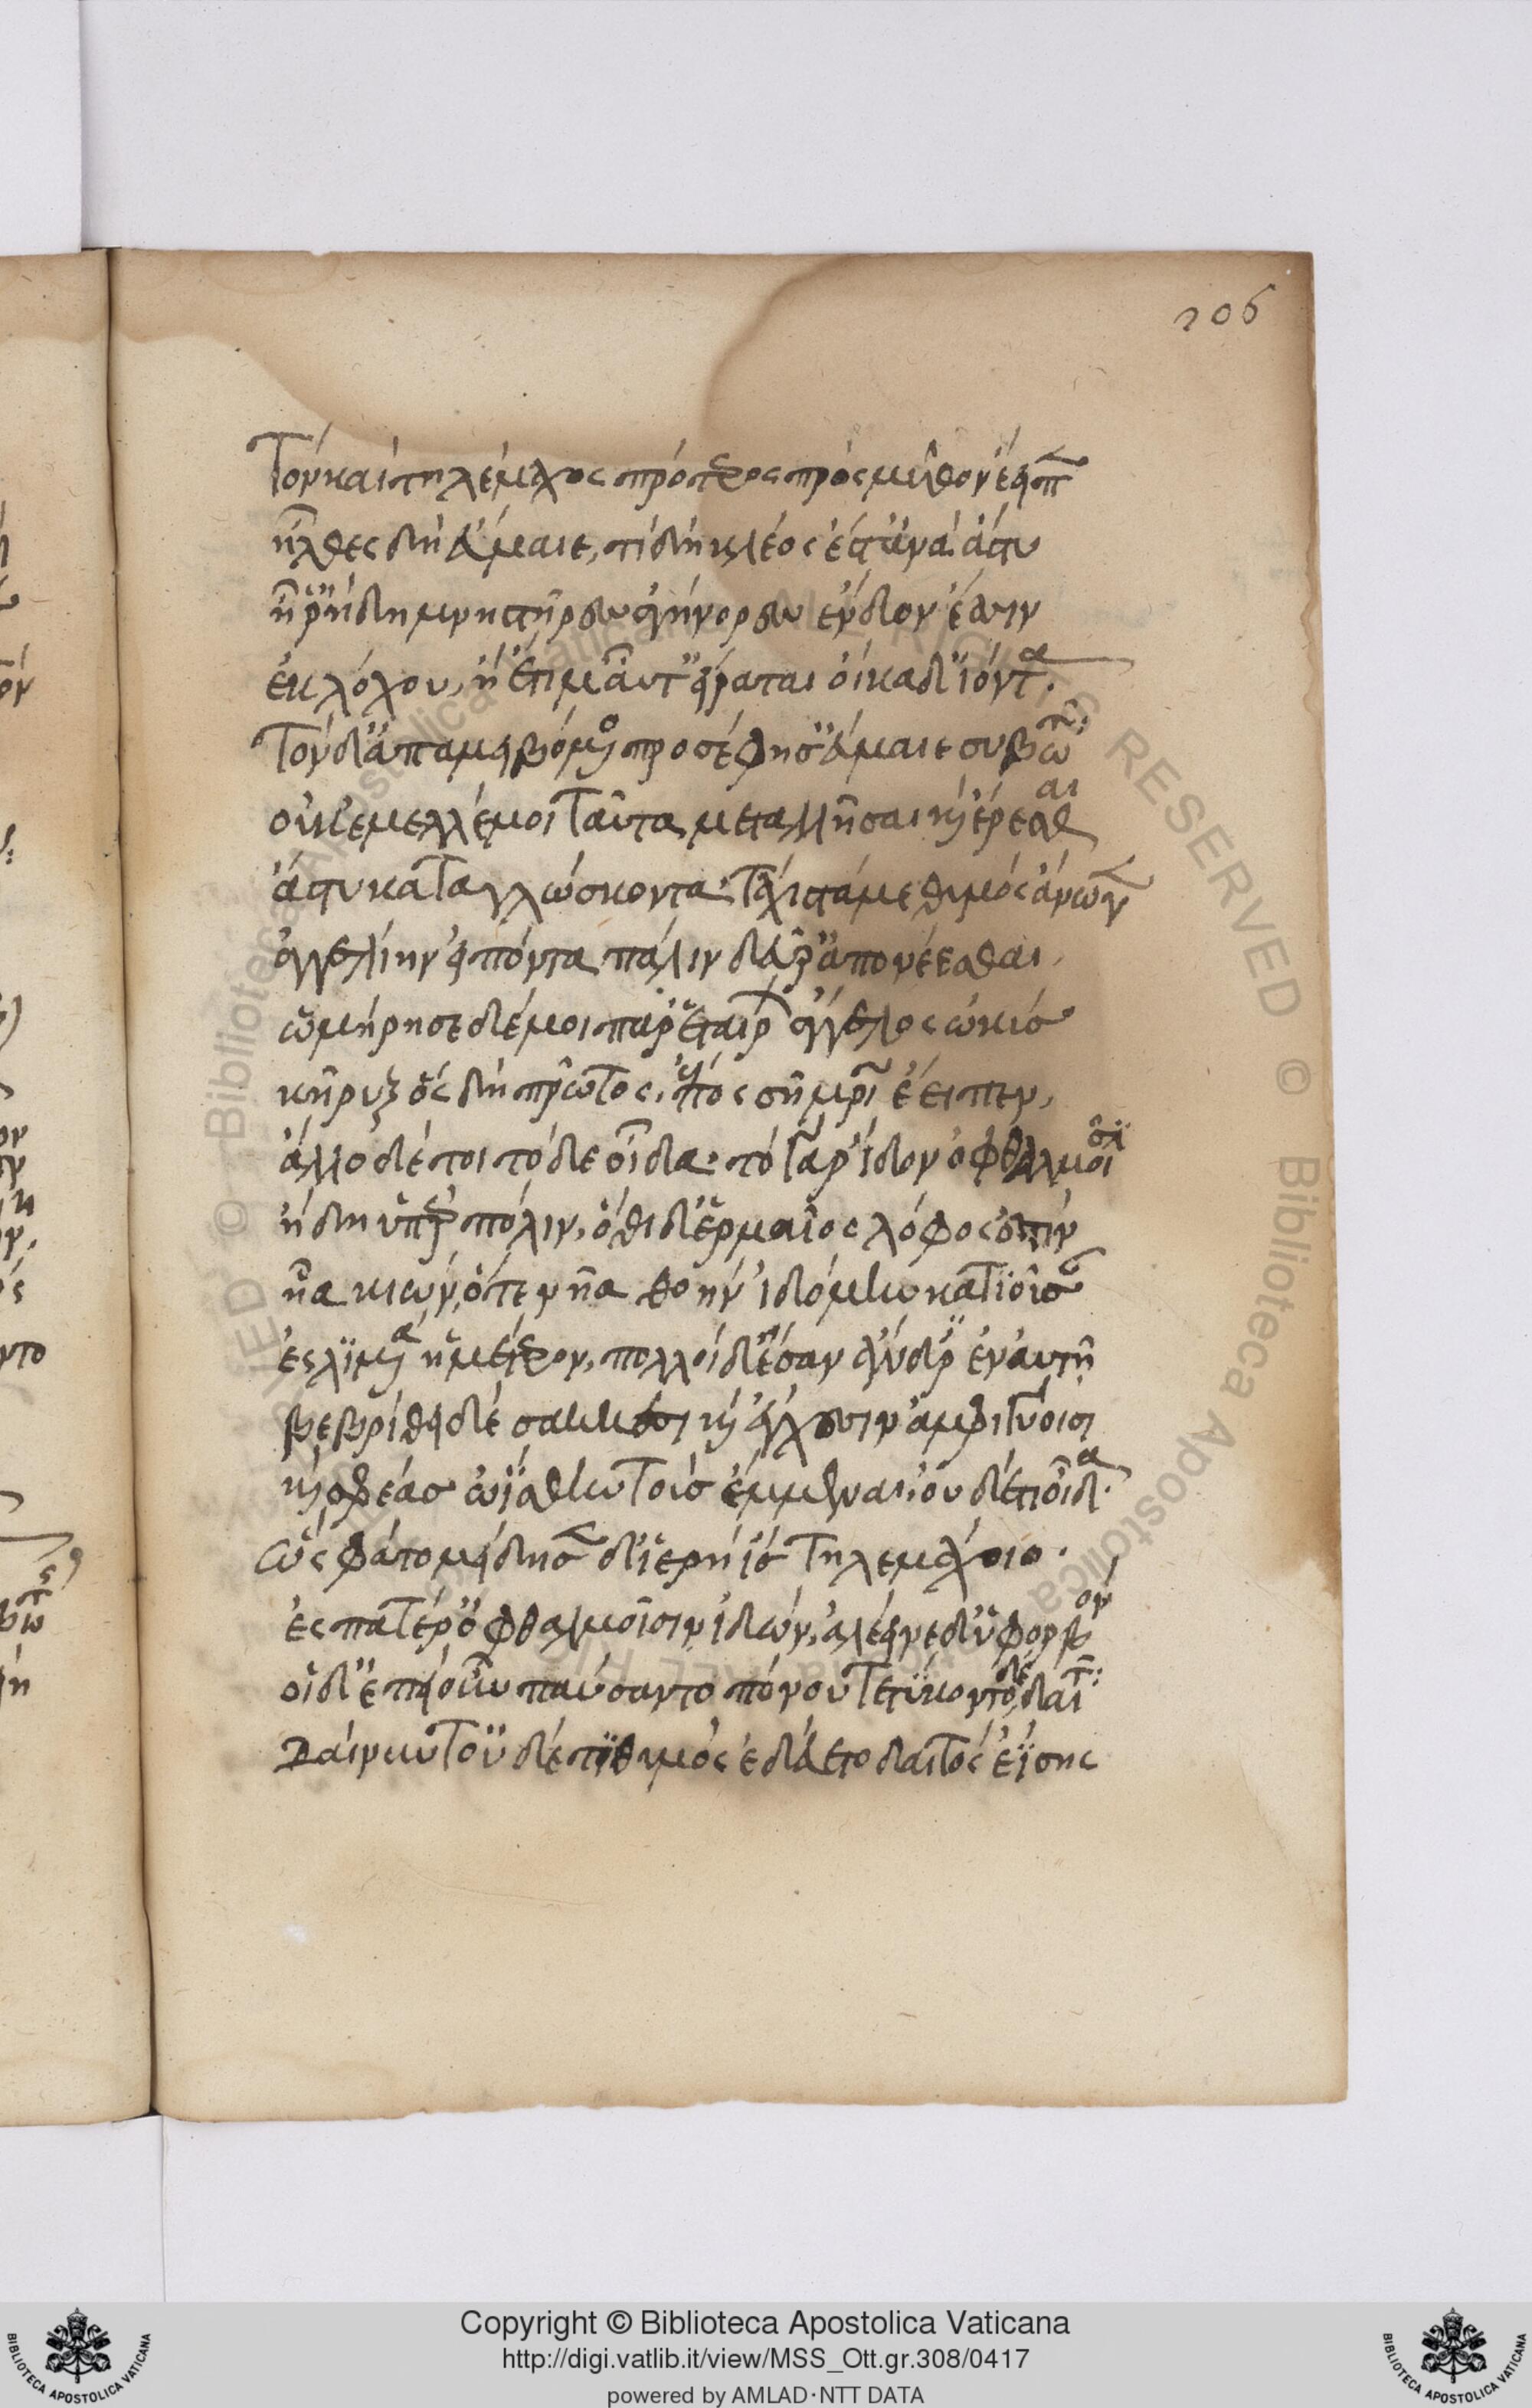 206
Τὸν καὶ τηλέμαχος πρότερος πρὸς μῦθον ἔειπε
ἦλθες δὴ εὔμαιε, τί δὴ κλέος ἔστ' ἀνὰ ἄστυ
ἦ ῥ' ἤδη μνηστῆρες ἀγήνορες ἔνδον ἔασιν
ἐκ λόχου, ἢ ἔτι μ' αὖτ' εἰρύαται οἴκαδ' ἰόντα.
Τὸν δ' ἀπαμειβόμενος προσέφης εὔμαιε συβῶτα:
οὐκ ἔμελλέ μοι ταῦτα μεταλλῆσαι καὶ ἔρεσθαι
ἄστυ καταβλώσκοντα· τάχιστά με θυμὸς ἀνώγει
ἀγγελίην εἰπόντα πάλιν δεῦρ' ἀπονέεσθαι.
ὡμήρησε δέ μοι παρ' ἑταίρων ἄγγελος ὠκὺς
κῆρυξ ὃς δὴ πρῶτος, ἔπος σῇ μητρὶ ἔειπεν,
ἄλλο δέ τοι τόδε οἶδα· τὸ γὰρ ἴδον ὀφθαλμοῖσι
ἤδη ὑπὲρ πόλιν, ὅθι δ' ἕρμαιος λόφος ἐστὶν
ἦα κιών, ὅτε νῆα θοὴν ἰδόμην κατιοῦσαν
ἐς λιμένα ἡμέτερον, πολλοὶ δ' ἔσαν ἄνδρες ἐν αὐτῇ
βεβρίθει δὲ σάκεσσι καὶ ἔγχεσιν ἀμφιγύοισι
καὶ σφέας ὠΐσθην τοὺς ἔμμεναι, οὐ δέ τι οἶδα.
Ὣς φάτο μείδησεν δ' ἱερὴ ἲς Τηλεμάχοιο.
ἐς πατέρ' ὀφθαλμοῖσιν ἰδών, ἀλέεινε δ' ὑφορβόν
οἱ δ' ἐπεὶ οὖν παύσαντο πόνου τετύκοντό δὲ δαῖτα:
Δαίνυντ' οὐδέ τι θυμὸς ἐδεύετο δαιτὸς ἐΐσης
Copyright © Biblioteca Apostolica Vaticana
http://digi.vatlib.it/view/MSS_Ott.gr.308/0417
powered by AMLAD·NTT DATA